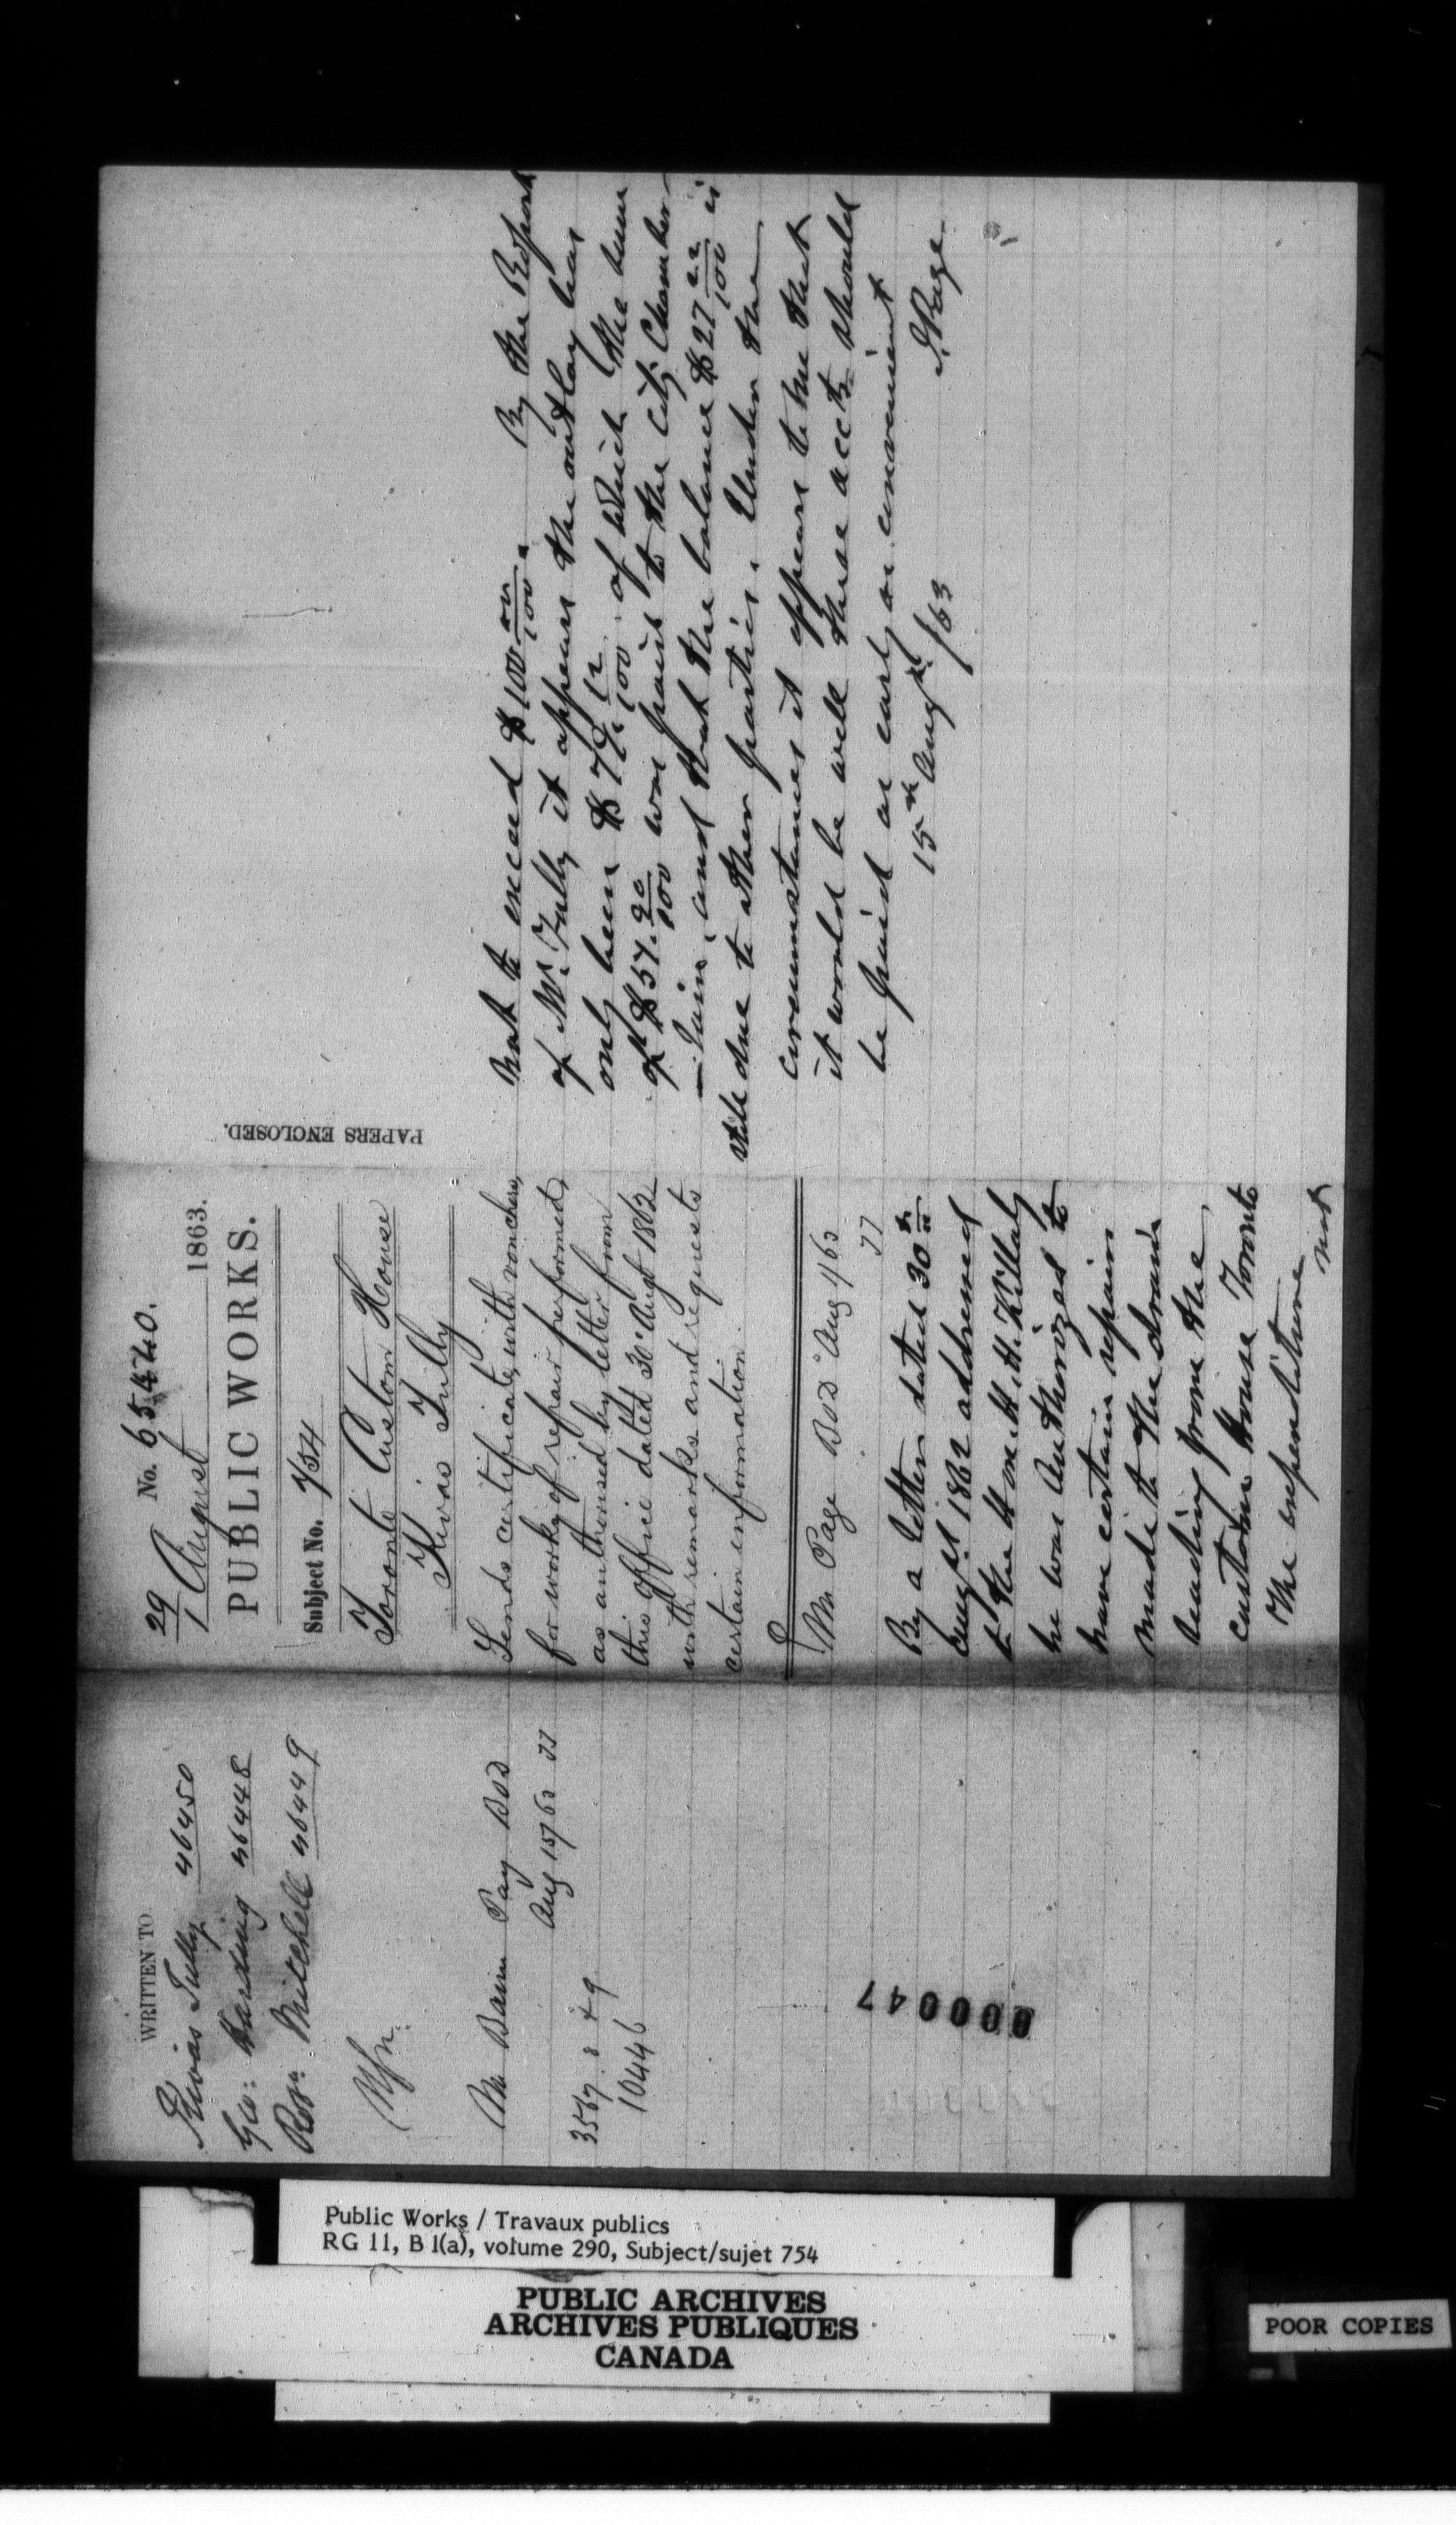 WRITTEN TO
Kivas Tully 46450
Geo: Harding 46448
Robt Mitchell 46449
Mr Baine Pay BOD
Aug 15/63 TT
3567. 8 & 9
10446
29 No. 65440.
1 August 1863.
PUBLIC WORKS.
Subject No. 754
Toronto Custom House
Kivas Tully
Sends certificate, with vouchers,
for works of repair performed,
as authorised by letter from
this office dated 30 Augt 1862
with remarks and requests
certain information.
Mr Page BOD Aug 4 63
TT
By a letter dated 30th
Augst 1862 addressed
to the Hon. H. H. Killaly
he was authorized to
have certain repairs
made to the drain
leading from the
custom House Toronto
the expenditure
not
PAPERS ENCLOSED.
not to exceed $100 00/100. By the Report
of Mr. Tully it appears the outlay has
only been $ 12/100 of which the sum
of $57.90/100 was paid to the City Chamber-
-lain, and that the balance $27 22/100 is
still due to other parties. Under the
circumstances it appears to me that
it would be well these accts should
be paid as early as convenient
15th Augst /63 J. Page
000047
Public Works / Travaux publics
RG 11, B 1(a), volume 290, Subject/sujet 754
PUBLIC ARCHIVES
ARCHIVES PUBLIQUES
CANADA
POOR COPIES